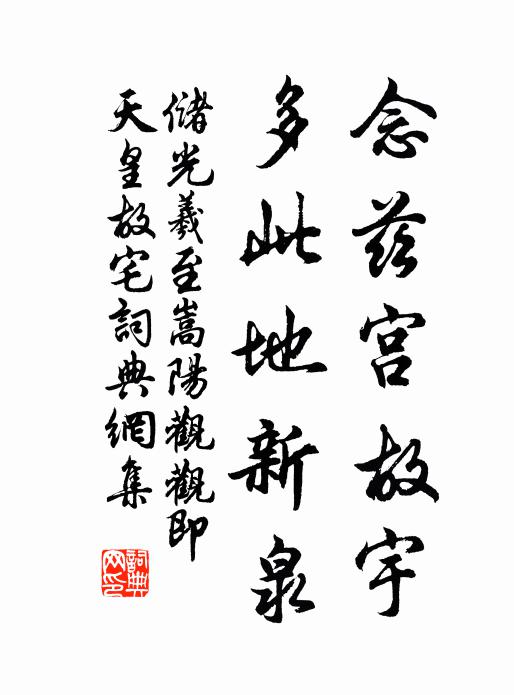 念茲宮故宇
多此地新泉
儲光羲至嵩陽觀觀即
天皇故宅詞典網集
詞典
网印